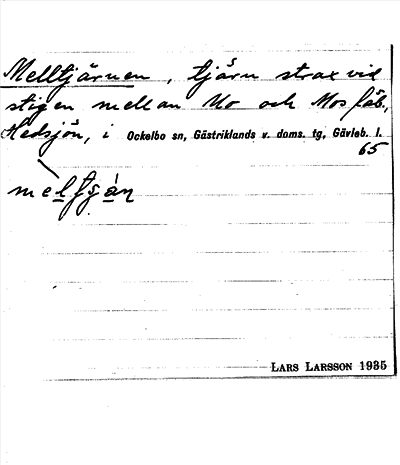 Melltjärnen, tjärn strax vid
stigen mellan Mo och Mosfäb.,
Hedsjön, i Ockelbo sn, Gästriklands v. doms. tg, Gävleb. l.
65
LARS LARSSON 1935